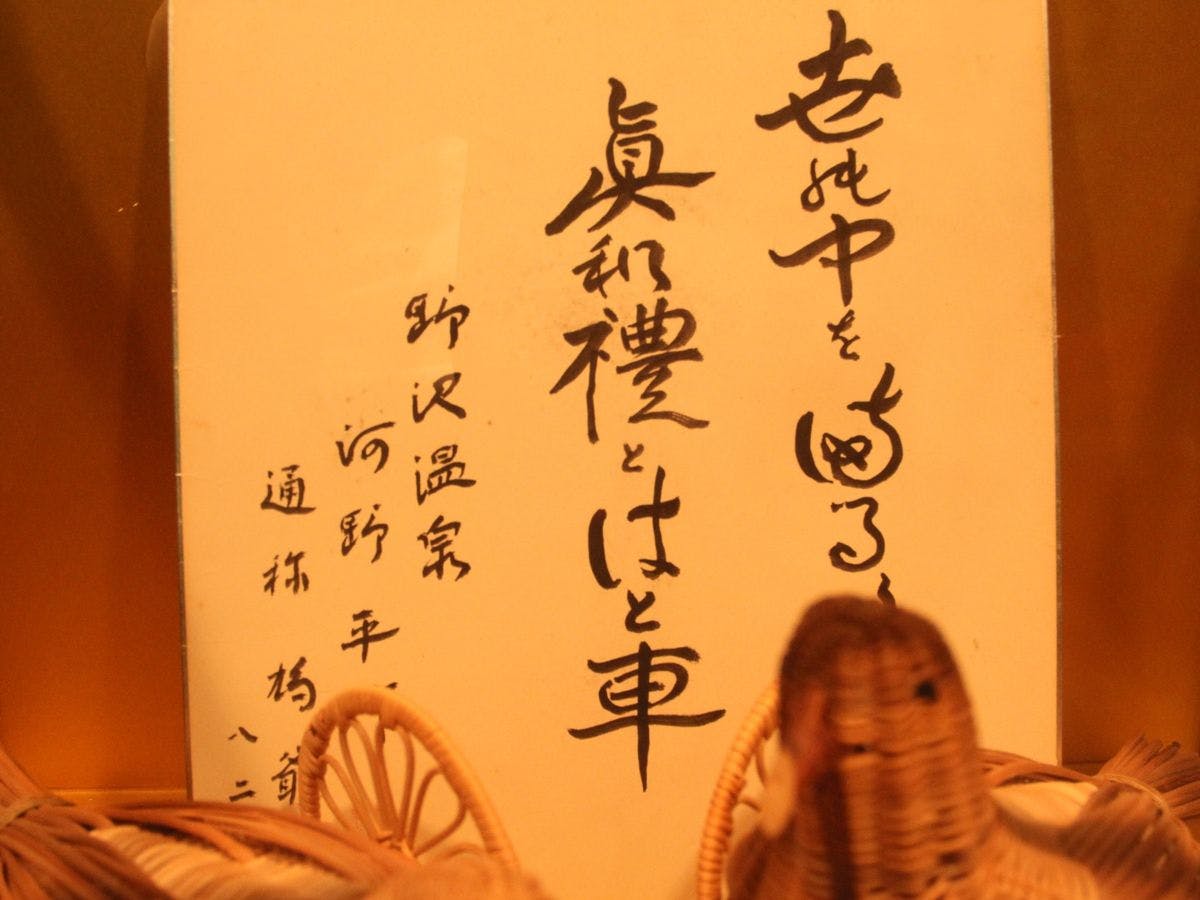 世能中を満る
眞和禮とはと車
野沢温泉
河野平
通称
八二